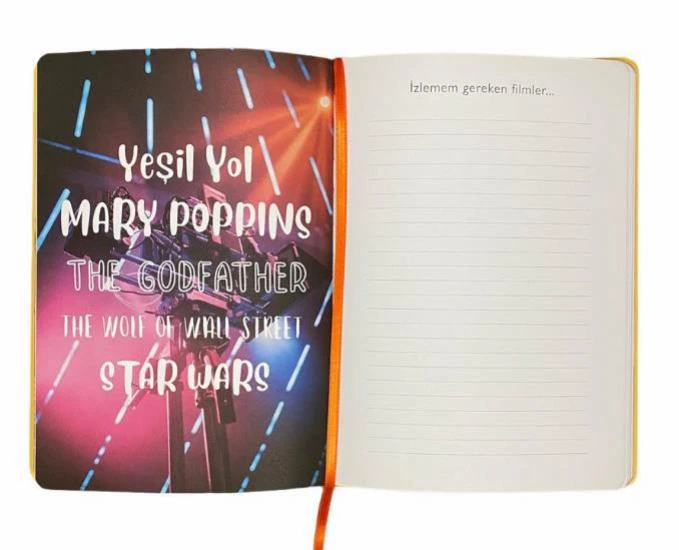 Yeşil Yol
MARY POPPINS
THE GODFATHER
THE WOLF OF WALL STREET
STAR WARS
İzlemem gereken filmler...